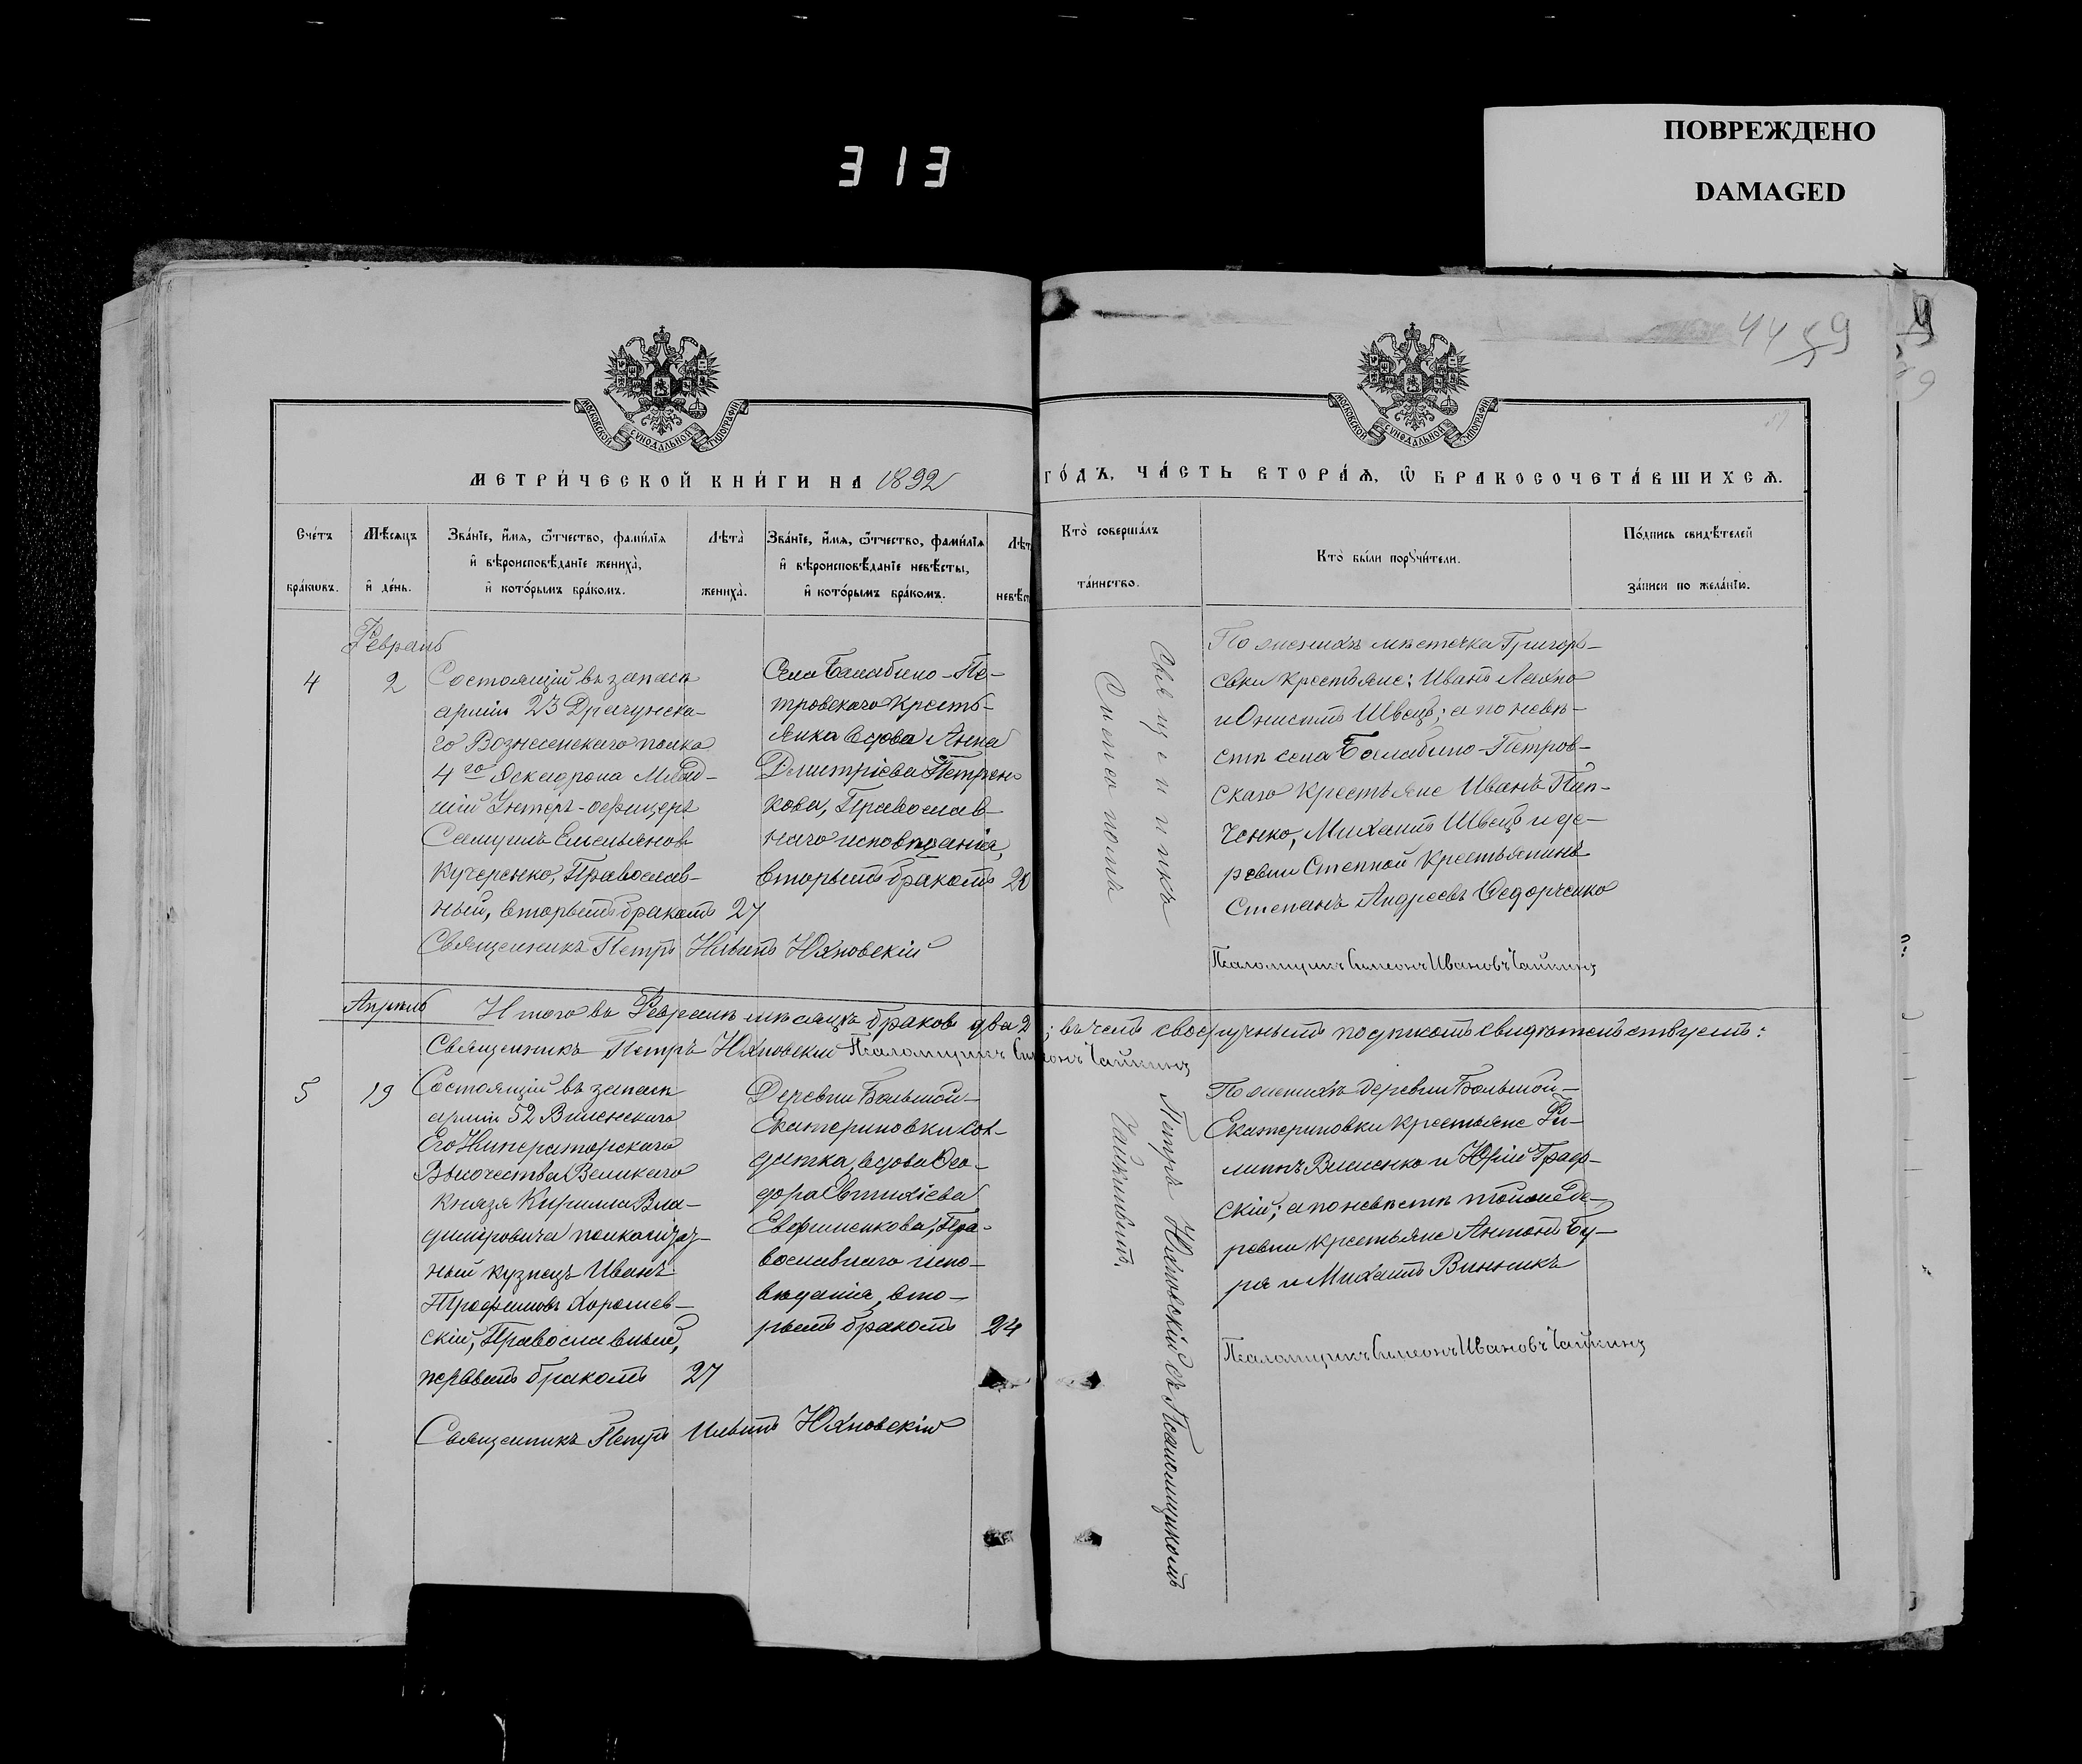 ПОВРЕЖДЕНО
DAMAGED
313
44 59
МОСКОВСКОЙ СѴНОДАЛЬНОЙ ТИПОГРАФІИ
МОСКОВСКОЙ СѴНОДАЛЬНОЙ ТИПОГРАФІИ
МЕТРИ́ЧЕСКОЙ КНИ́ГИ НА 1892 ГО́ДЪ, ЧА́СТЬ ВТОРА́Я, Ѿ БРАКОСОЧЕТА́ВШИХСЯ.
Сче́тъ бра́кωвъ.
Мѣ́сяцъ и҆ де́нь.
Зва́нїе, и҆́мя, ѻ҆́тчество, фами́лїя
и҆ вѣроисповѣ́данїе жениха̀,
и҆ кото́рымъ бра́комъ.
Лѣта̀ жениха̀.
Зва́нїе, и҆́мя, ѻ҆́тчество, фами́лїя
и҆ вѣроисповѣ́данїе невѣ́сты,
и҆ кото́рымъ бра́комъ.
Лѣт
невѣ́ст
Кто̀ соверша́лъ
та́инство.
Кто̀ бы́ли порꙋчи́тели.
По́дпись свидѣ́телей
за́писи по жела́нїю.
Февраль
4
2
Состоящій въ запасѣ
арміи 23 Драгунска-
го Вознесенскаго полка
4го Эскадрона Млад-
шій Унтеръ-офицеръ
Самуилъ Емельяновъ
Кучеренко, Православ-
ный, вторымъ бракомъ 27
Села Балабино-Пе-
тровскаго Кресть-
янка вдова Анна
Дмитріева Петрен-
кова, Православ-
наго исповѣданія,
вторымъ бракомъ
Священникъ Петръ Ильинъ Юхновскій
Священникъ
Симеономъ
По женихѣ мѣстечка Григорь-
евки крестьяне: Иванъ Ляхно
и Онисимъ Швецъ; а по невѣ-
стѣ села Балабино-Петров-
скаго крестьяне Иванъ Пип-
ченко, Михаилъ Швецъ и де-
ревни Степной крестьянинъ
Степанъ Андреевъ Ѳедорченко
Псаломщикъ Симеонъ Ивановъ Чайкинъ
Апрѣль
Итого въ Февралѣ мѣсяцѣ браковъ два 2; въ чемъ своеручнымъ подпискомъ свидѣтельствуемъ:
Священникъ Петръ Юхновскій Псаломщикъ Симеонъ Чайкинъ
5
19
Состоящій въ запасѣ
арміи 52 Виленскаго
Его Императорскаго
Высочества Великаго
Князя Кирилла Вла-
диміровича полка
ный кузнецъ Иванъ
Трофимовъ Хорошев-
скій, Православный,
первымъ бракомъ 27
Деревни Большой-
Екатериновки сол-
датка, вдова Ѳео-
дора Евтихіева
Ефименкова, Пра-
вославнаго испо-
вѣданія, вто-
рымъ бракомъ 24
Священникъ Петръ Ильинъ Юхновскій
Петръ Юхновскій съ Псаломщикомъ
Чайкинымъ.
По женихѣ деревни Большой-
Екатериновки крестьяне Фи-
липпъ Вишенко и Юрій Граф-
скій; а по невѣстѣ той же де-
ревни крестьяне Антонъ Бу-
ря и Михаилъ Винникъ
Псаломщикъ Симеонъ Ивановъ Чайкинъ